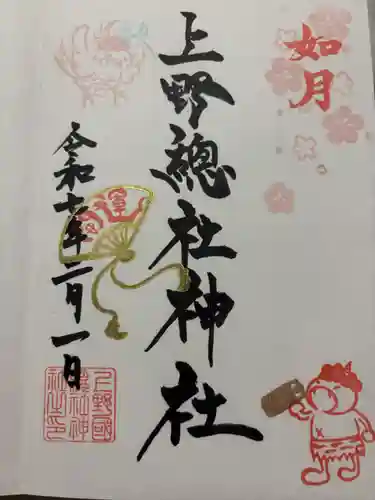 如月
上野總社神社
令和七年二月一日
上野國
總社神
社之印